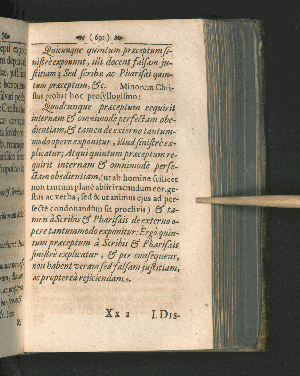 (691)
Quicunque quintum præceptum si-
nistrè exponunt, illi docent falsam ju-
stitiam; Sed scribæ ac Pharisæi quin-
tum præceptum, &c. Minorem Chri-
stus probat hoc prosyllogismo:
Quodcunque præceptum requirit
internam & omnimode perfectam obe-
dientiam, & tamen de externo tantum-
modo opere exponitur, illud sinistrè ex-
plicatur; Atqui quintum præceptum re-
quirit internam & omnimode perfe-
ctam obedientiam, (ut ab homine scilicet
non tantum planè absit iracundum cor, ge-
stus ac verba, sed & ut animus ejus ad per-
fectè condonandum sit proclivis) & ta-
men à Scribis & Pharisæis de externo o-
pere tantummodo exponitur: Ergò quin-
tum præceptum à Scribis & Pharisæis
sinistrè explicatur, & per consequens,
non habent veram sed falsam justitiam,
ac propterea rejiciendam.
Xx 2 I. Dis-